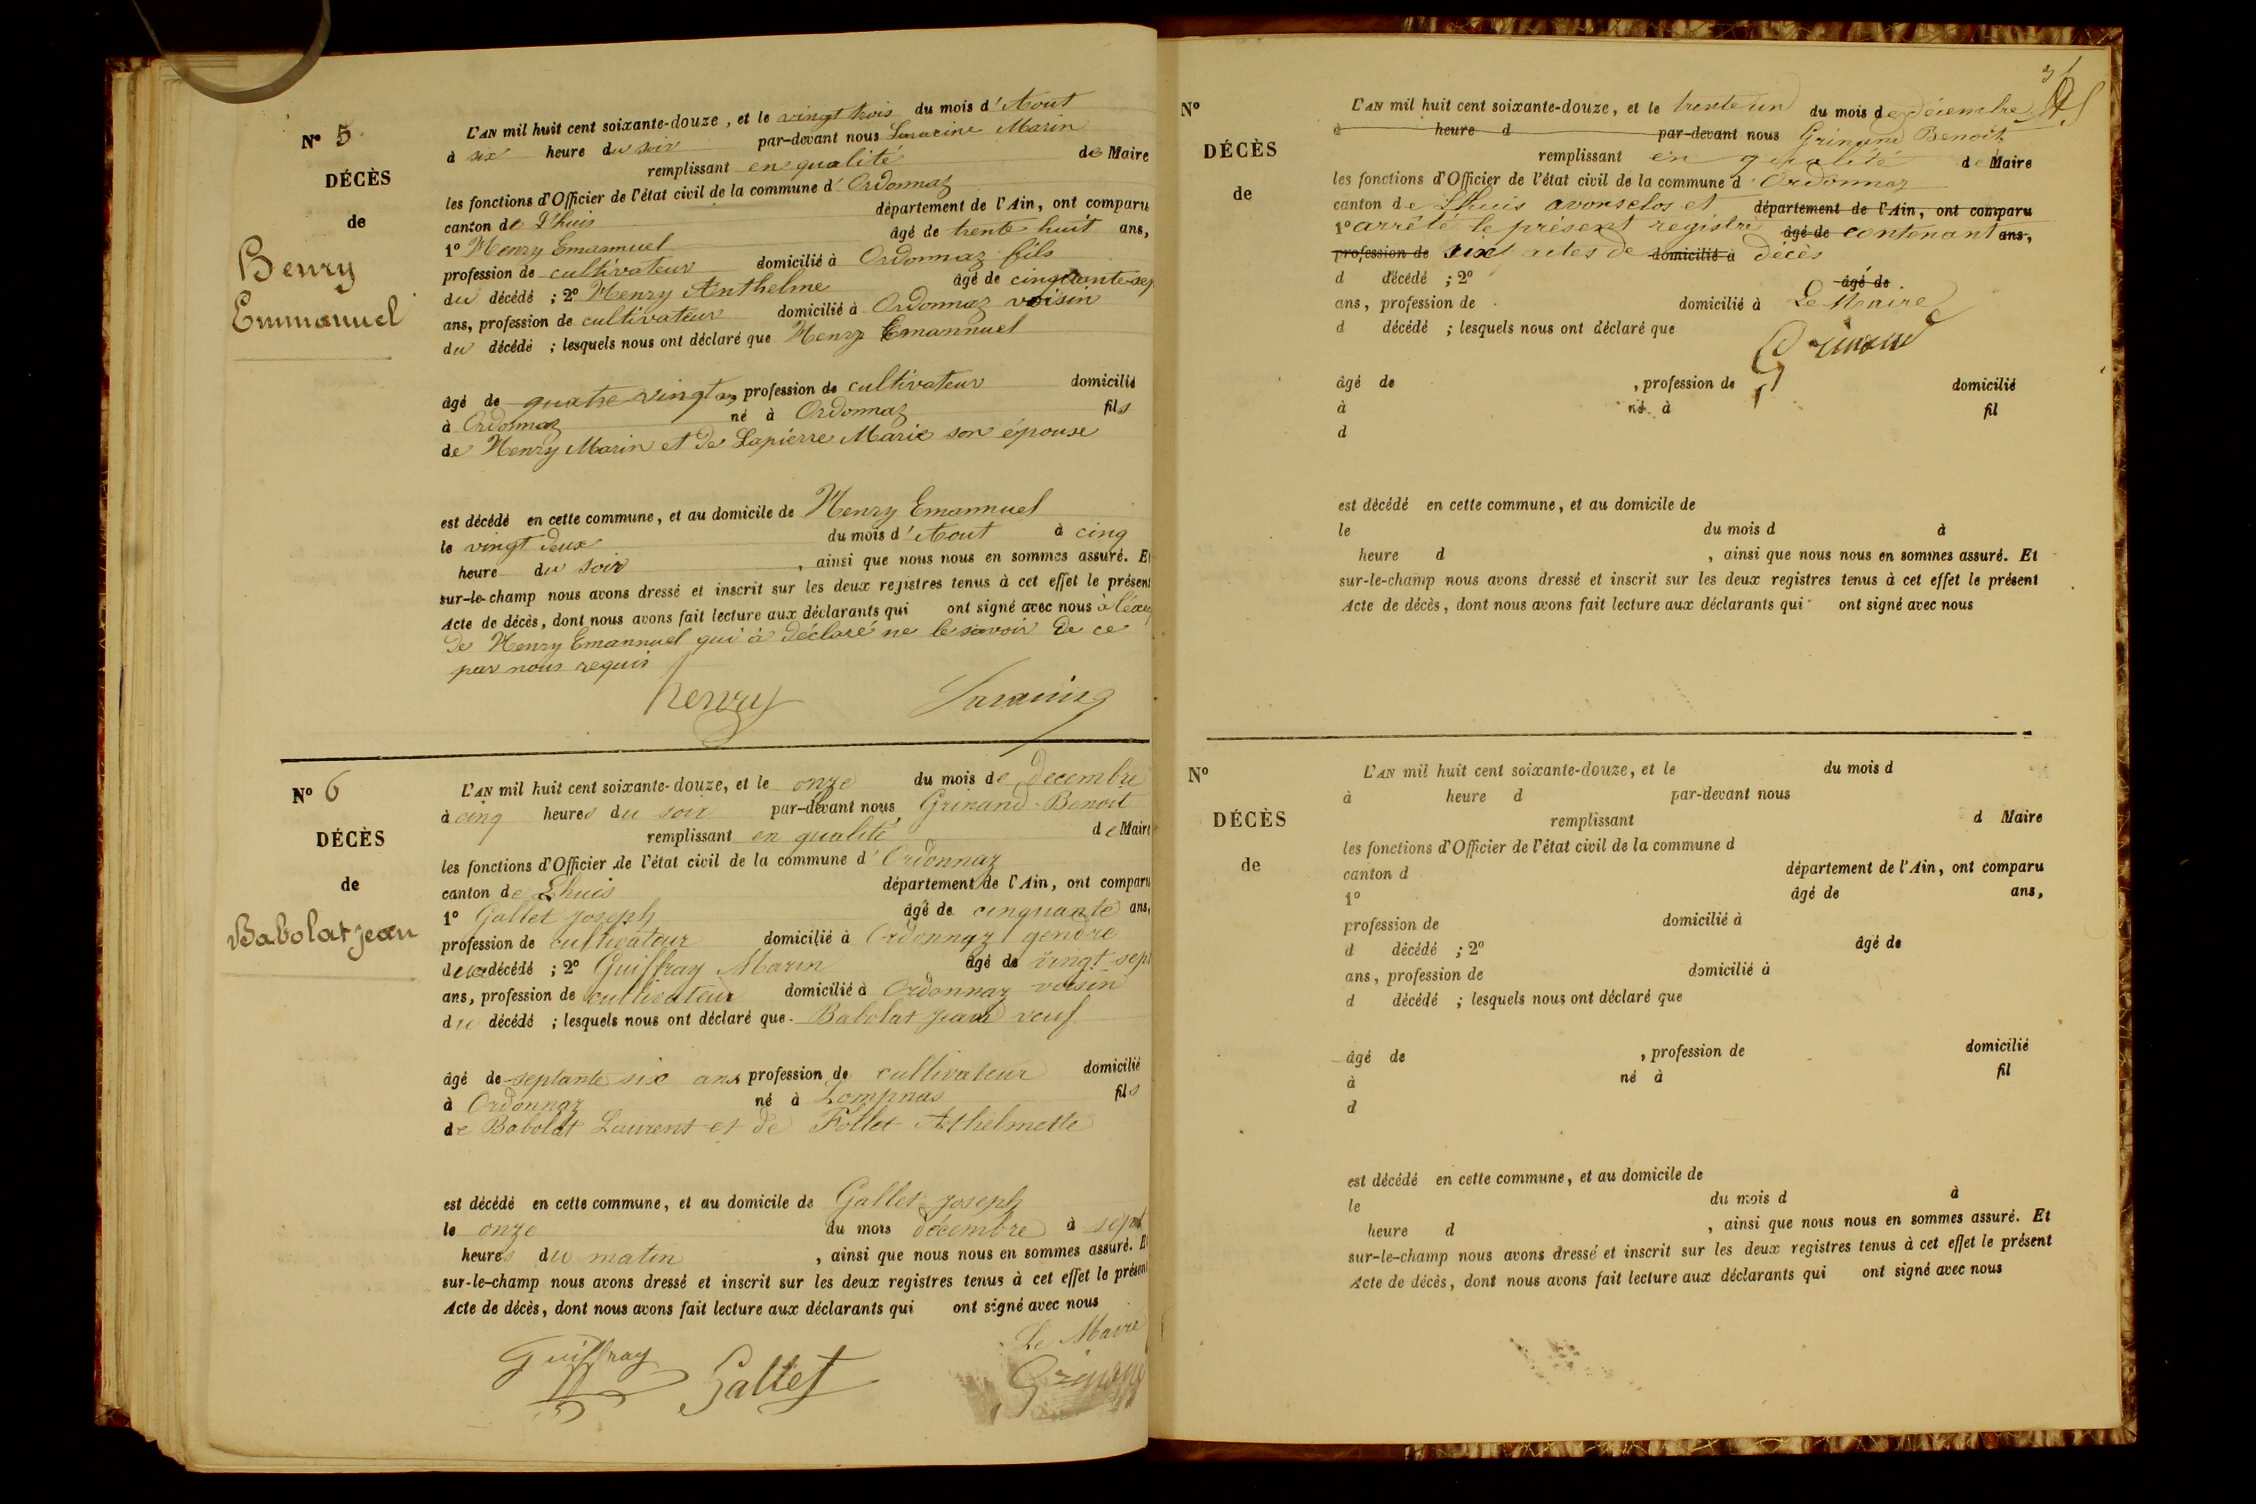 N° 5
DÉCÈS
de
Henry
Emmanuel
L'AN mil huit cent soixante-douze, et le vingt trois du mois d'Aout
à six heure du soir par-devant nous Saracine Marin
remplissant en qualité de Maire
les fonctions d'Officier de l'état civil de la commune d'Ordonnaz
canton de L'huis département de l'Ain, ont comparu
1° Henry Emannuel âgé de trente huit ans,
profession de cultivateur domicilié à Ordonnaz fils
du décédé ; 2° Henry Anthelme âgé de cinquante-sep
ans, profession de cultivateur domicilié à Ordonnaz voisin
du décédé ; lesquels nous ont déclaré que Henry Emannuel
âgé de quatre vingt ans profession de cultivateur domicilié
à Ordonnaz né à Ordonnaz fils
de Henry Marin et de Lapierre Marie son épouse
est décédé en cette commune, et au domicile de Henry Emannuel
le vingt deux du mois d'Aout à cinq
heure du soir , ainsi que nous nous en sommes assuré. Et
sur-le-champ nous avons dressé et inscrit sur les deux registres tenus à cet effet le présent
Acte de décès, dont nous avons fait lecture aux déclarants qui ont signé avec nous à l'éxe
de Henry Emannuel qui à déclaré ne le savoir de ce
par nous requis
henry
N° 6
DÉCÈS
de
Babolat jean
L'AN mil huit cent soixante-douze, et le onze du mois de decembre
à cinq heures du soir par-devant nous Grinand Benoit
remplissant en qualité de Maire
les fonctions d'Officier de l'état civil de la commune d'Ordonnaz
canton de Lhuis département de l'Ain, ont comparu
1° Gallet joseph âgé de cinquante ans,
profession de cultivateur domicilié à Ordonnaz gendre
décédé ; 2° Guiffray Marin âgé de vingt sept
ans, profession de cultivateur domicilié à Ordonnaz voisin
du décédé ; lesquels nous ont déclaré que Babolat jean veuf
âgé de septante six ans profession de cultivateur domicilié
à Ordonnaz né à Lompnas fils
de Babolat Laurent et de Follet Athelmette
est décédé en cette commune, et au domicile de Gallet joseph
le onze du mois décembre à sept
heures du matin , ainsi que nous nous en sommes assuré. Et
sur-le-champ nous avons dressé et inscrit sur les deux registres tenus à cet effet le présent
Acte de décès, dont nous avons fait lecture aux déclarants qui ont signé avec nous
Le Maire
Guiffray Gallet Grinand
N°
DÉCÈS
de
L'AN mil huit cent soixante-douze, et le trente un du mois de décembre
à heure d par-devant nous Grinand Benoit
remplissant en qualité de Maire
les fonctions d'Officier de l'état civil de la commune d'Ordonnaz
canton de Lhuis avons clos et département de l'Ain, ont comparu
1° arrêté le présent registre âgé de contenant ans,
profession de six actes de domicilié à décès
d décédé ; 2° âgé de
ans, profession de domicilié à Le Maire
d décédé ; lesquels nous ont déclaré que
Grinand
âgé de , profession de domicilié
à né à fil
d
est décédé en cette commune, et au domicile de
le du mois d à
heure d , ainsi que nous nous en sommes assuré. Et
sur-le-champ nous avons dressé et inscrit sur les deux registres tenus à cet effet le présent
Acte de décès, dont nous avons fait lecture aux déclarants qui ont signé avec nous
N°
DÉCÈS
de
L'AN mil huit cent soixante-douze, et le du mois d
à heure d par-devant nous
remplissant d Maire
les fonctions d'Officier de l'état civil de la commune d
canton d département de l'Ain, ont comparu
1° âgé de ans,
profession de domicilié à
d décédé ; 2° âgé de
ans, profession de domicilié à
d décédé ; lesquels nous ont déclaré que
âgé de , profession de domicilié
à né à fil
d
est décédé en cette commune, et au domicile de
le du mois d à
heure d , ainsi que nous nous en sommes assuré. Et
sur-le-champ nous avons dressé et inscrit sur les deux registres tenus à cet effet le présent
Acte de décès, dont nous avons fait lecture aux déclarants qui ont signé avec nous